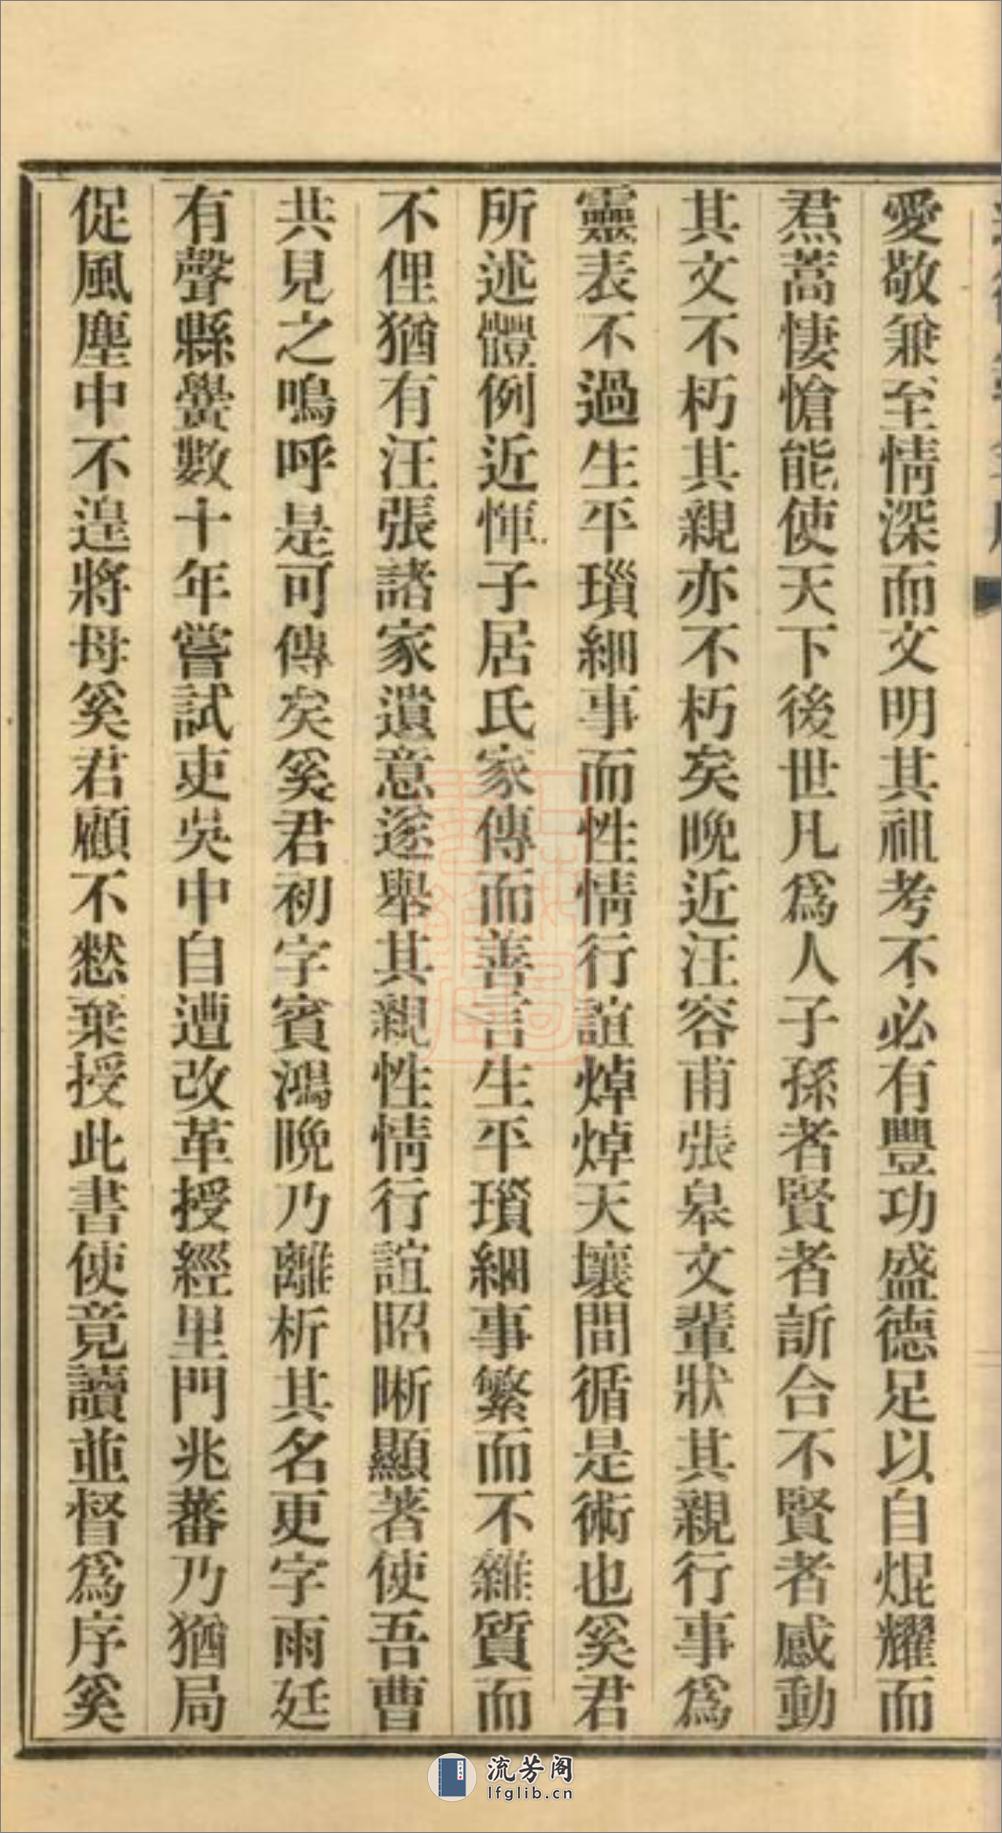 愛敬兼至情深而文明其祖考不必有豐功盛德足以自焜耀而
焄蒿悽愴能使天下後世凡爲人子孫者賢者訢合不賢者感動
其文不朽其親亦不朽矣晩近汪容甫張皋文輩狀其親行事爲
靈表不過生平瑣細事而性情行誼焯焯天壤間循是術也奚君
所述體例近惲子居氏家傳而善言生平瑣細事繁而不雜質而
不俚猶有汪張諸家遺意遂舉其親性情行誼昭晰顯著使吾曹
共見之嗚呼是可傳矣奚君初字賓鴻晩乃離析其名更字雨廷
有聲縣黌數十年嘗試吏吳中自遭改革授經里門兆蕃乃猶局
促風塵中不遑將母奚君顧不憖棄授此書使竟讀並督爲序奚
流芳阁
lfglib.cn